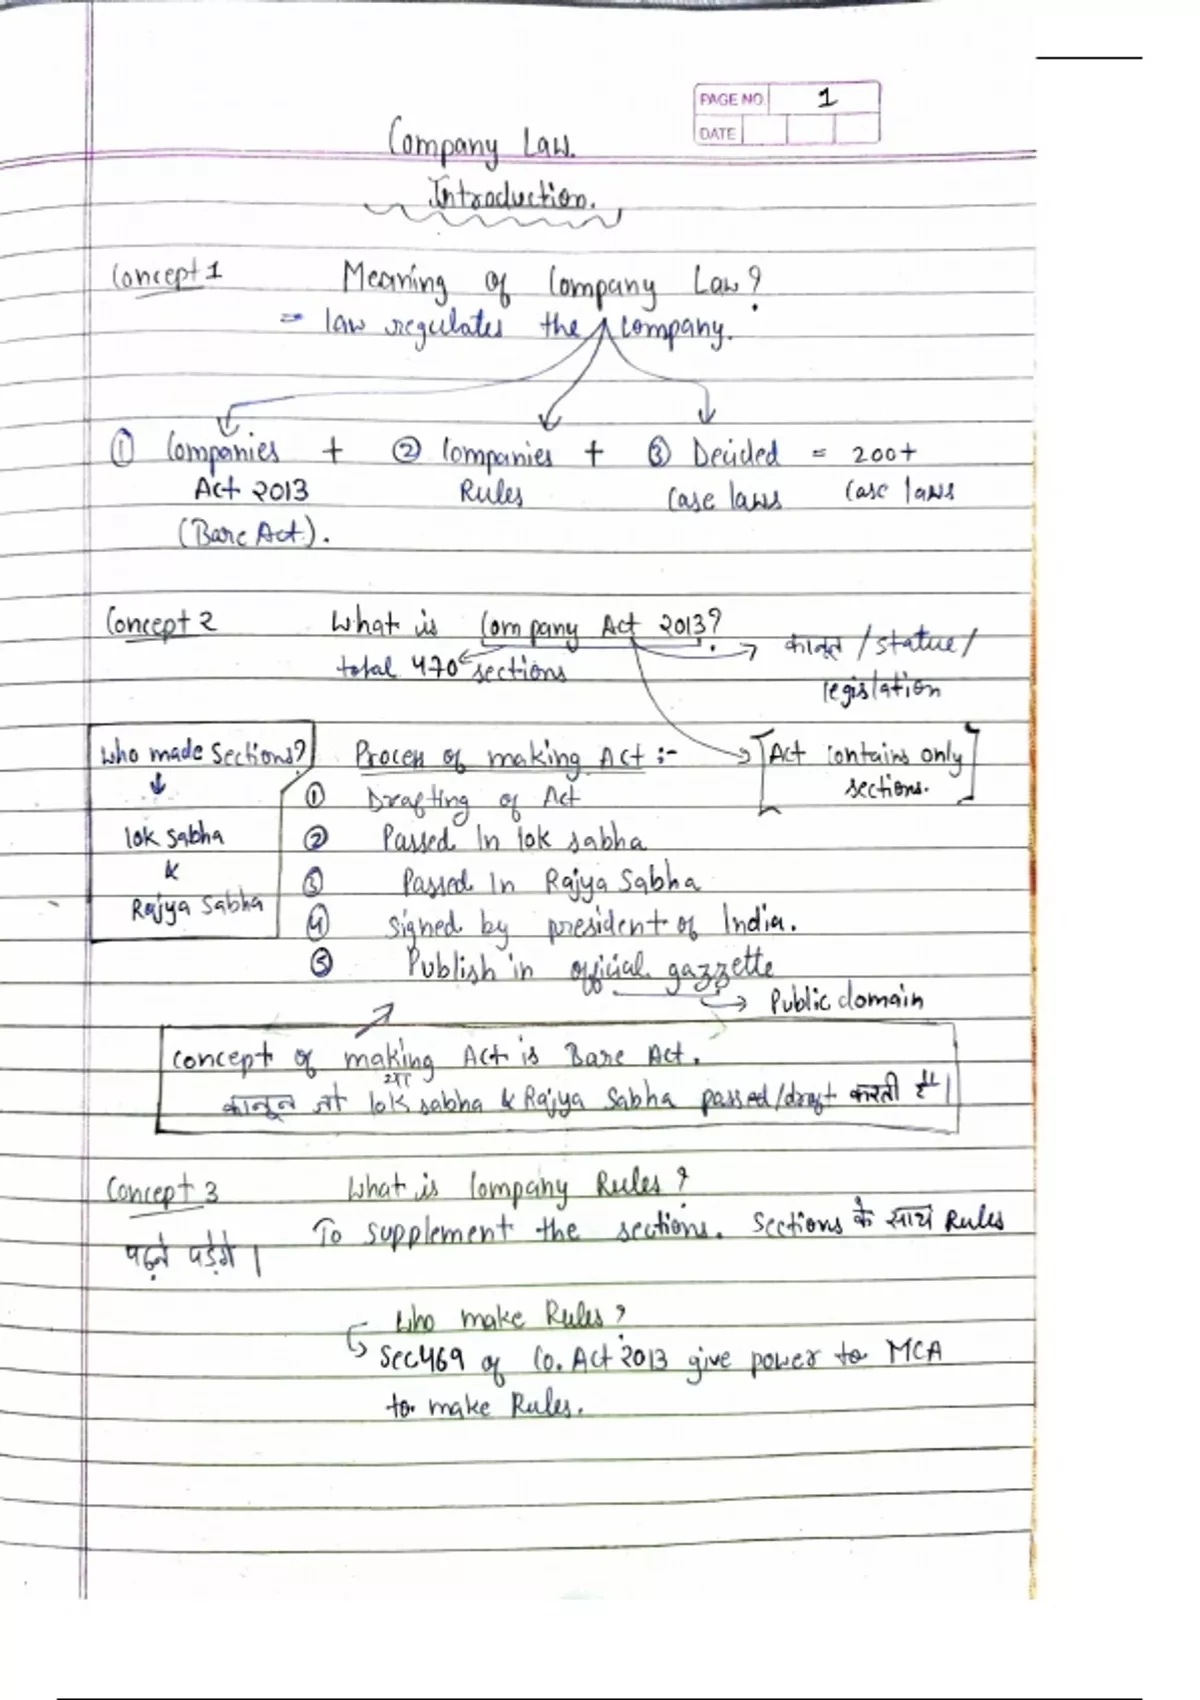 PAGE NO. 1
DATE
Company Law.
Introduction.
Concept 1 Meaning of Company Law?
= law regulates the company.
① Companies + ② Companies + ③ Decided = 200+
Act 2013 Rules Case laws Case laws
(Bare Act).
Concept 2 What is Company Act 2013?
कानून / statue /
total 470 sections
legislation
Who made Sections? Process of making Act :- [Act contains only
① Drafting of Act sections.]
lok sabha ② Passed In lok sabha
& ③ Passed In Rajya Sabha
Rajya Sabha ④ Signed by president of India.
⑤ Publish in official gazzette
Public domain
concept of making Act is Bare Act.
कानून जो lok sabha & Rajya Sabha passed/draft करती है।
Concept 3 What is Company Rules?
To supplement the sections. Sections के साथ Rules
पढ़ने पड़ेंगे।
Who make Rules?
Sec 469 of Co. Act 2013 give power to MCA
to make Rules.